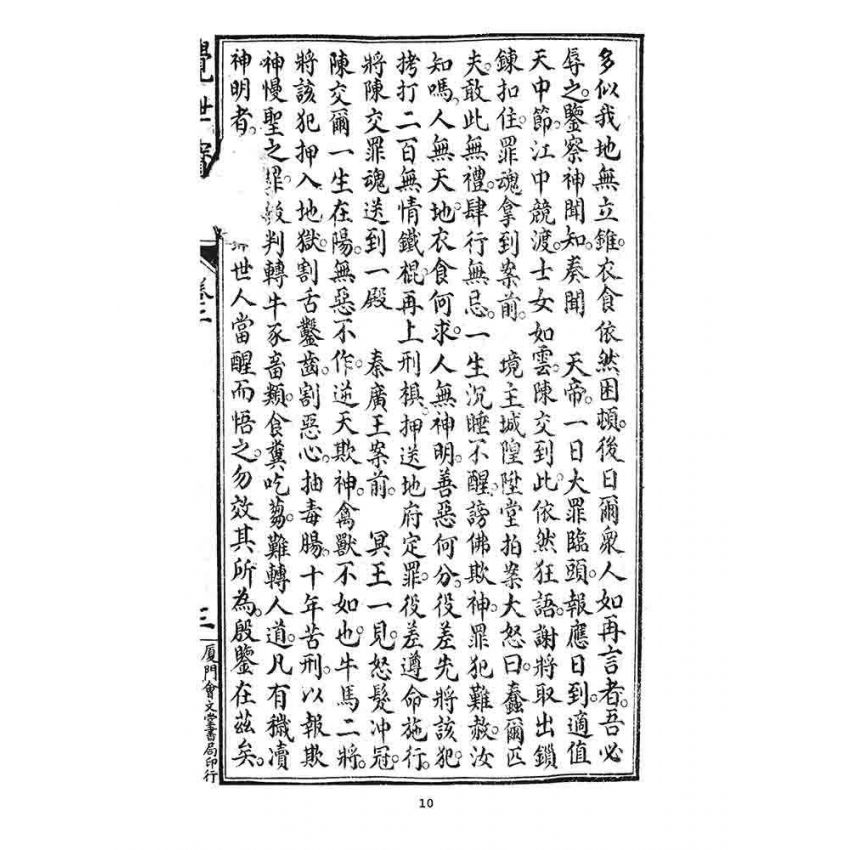 多似我地無立錐。衣食依然困頓。後日爾衆人如再言者。吾必
辱之。鑒察神聞知。奏聞　天帝。一日大罪臨頭。報應日到。適值
天中節。江中競渡。士女如雲。陳交到此。依然狂語。謝將取出鎖
鍊扣住。罪魂拿到案前。　境主城隍陞堂拍案大怒曰。蠢爾匹
夫。敢此無禮。肆行無忌。一生沉睡不醒。謗佛欺神。罪犯難赦。汝
知嗎。人無天地。衣食何求。人無神明。善惡何分。役差先將該犯
拷打二百無情鐵棍。再上刑棋。押送地府定罪。役差遵命施行。
將陳交罪魂送到一殿　秦廣王案前。　冥王一見。怒髮冲冠。
陳交爾一生在陽。無惡不作。逆天欺神。禽獸不如也。牛馬二將。
將該犯押入地獄。割舌鑿齒。割惡心。抽毒腸。十年苦刑。以報欺
神慢聖之罪。判轉牛豕畜類。食糞吃蒭。難轉人道。凡有穢瀆
神明者。世人當醒而悟之。勿效其所為。殷鑒在茲矣。
覺世
卷二
三
厦門會文堂書局印行
10